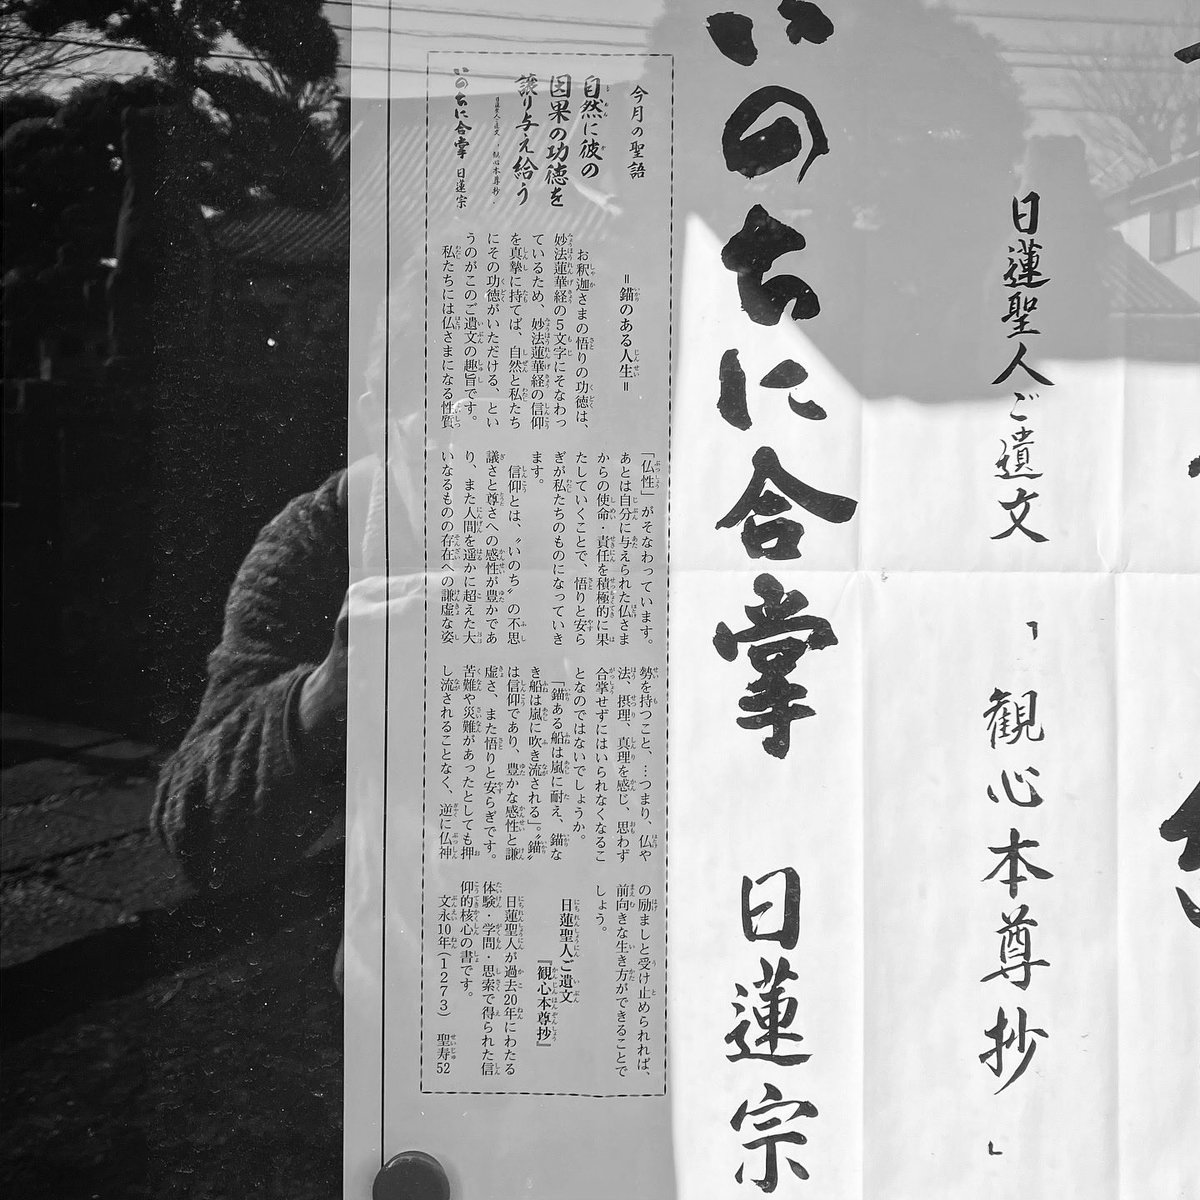 日蓮聖人ご遺文
「観心本尊抄」
いのちに合掌 日蓮宗
今月の聖語
自然に彼の
因果の功徳を
譲り与え給う
日蓮聖人ご遺文「観心本尊抄」
いのちに合掌 日蓮宗
＝錨のある人生＝
お釈迦さまの悟りの功徳は、
妙法蓮華経の5文字にそなわっ
ているため、妙法蓮華経の信仰
を真摯に持てば、自然と私たち
にその功徳がいただける、とい
うのがこのご遺文の趣旨です。
私たちには仏さまになる性質
「仏性」がそなわっています。
あとは自分に与えられた仏さま
からの使命・責任を積極的に果
たしていくことで、悟りと安ら
ぎが私たちのものになっていき
ます。
信仰とは、〝いのち〟の不思
議さと尊さへの感性が豊かであ
り、また人間を遥かに超えた大
いなるものの存在への謙虚な姿
勢を持つこと、…つまり、仏や
法、摂理、真理を感じ、思わず
合掌せずにはいられなくなるこ
となのではないでしょうか。
「錨ある船は嵐に耐え、錨な
き船は嵐に吹き流される」。〝錨〟
は信仰であり、豊かな感性と謙
虚さ、また悟りと安らぎです。
苦難や災難があったとしても押
し流されることなく、逆に仏神
の励ましと受け止められれば、
前向きな生き方ができることで
しょう。
日蓮聖人ご遺文
『観心本尊抄』
日蓮聖人が過去20年にわたる
体験・学問・思索で得られた信
仰的核心の書です。
文永10年（1273） 聖寿52